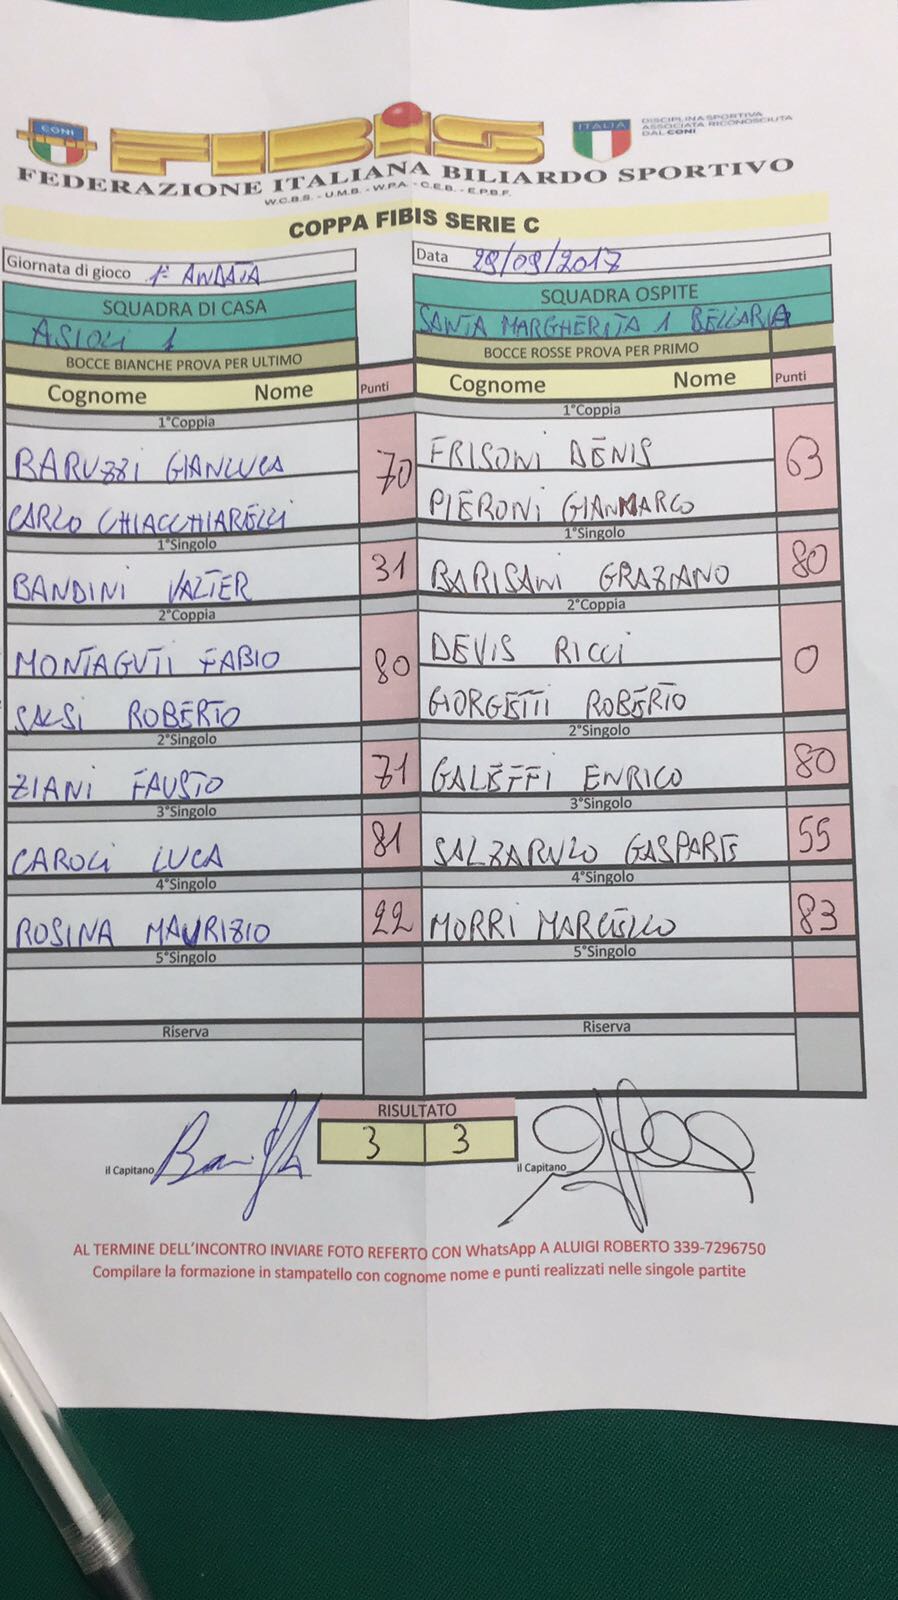 CONI
FIBIS
ITALIA
DISCIPLINA SPORTIVA
ASSOCIATA RICONOSCIUTA
DAL CONI
FEDERAZIONE ITALIANA BILIARDO SPORTIVO
W.C.B.S. - U.M.B. - W.P.A. - C.E.B. - E.P.B.F.
COPPA FIBIS SERIE C
Giornata di gioco 1ª ANDATA
Data 29/09/2017
SQUADRA DI CASA
SQUADRA OSPITE
ASIOLI 1
SANTA MARGHERITA 1 BELLARIA
BOCCE BIANCHE PROVA PER ULTIMO
BOCCE ROSSE PROVA PER PRIMO
Cognome Nome Punti
Cognome Nome Punti
1°Coppia
1°Coppia
BARUZZI GIANLUCA 70
FRISONI DENIS 63
CARLO CHIACCHIARELLI
PIERONI GIANMARCO
1°Singolo
1°Singolo
BANDINI VALTER 31
BARISANI GRAZIANO 80
2°Coppia
2°Coppia
MONTAGUTI FABIO 80
DEVIS RICCI 0
SALSI ROBERTO
GIORGETTI ROBERTO
2°Singolo
2°Singolo
ZIANI FAUSTO 71
GALEFFI ENRICO 80
3°Singolo
3°Singolo
CAROLI LUCA 81
SALZARULO GASPARE 55
4°Singolo
4°Singolo
ROSINA MAURIZIO 22
MORRI MARCELLO 83
5°Singolo
5°Singolo
Riserva
Riserva
RISULTATO
3 3
il Capitano
il Capitano
AL TERMINE DELL'INCONTRO INVIARE FOTO REFERTO CON WhatsApp A ALUIGI ROBERTO 339-7296750
Compilare la formazione in stampatello con cognome nome e punti realizzati nelle singole partite